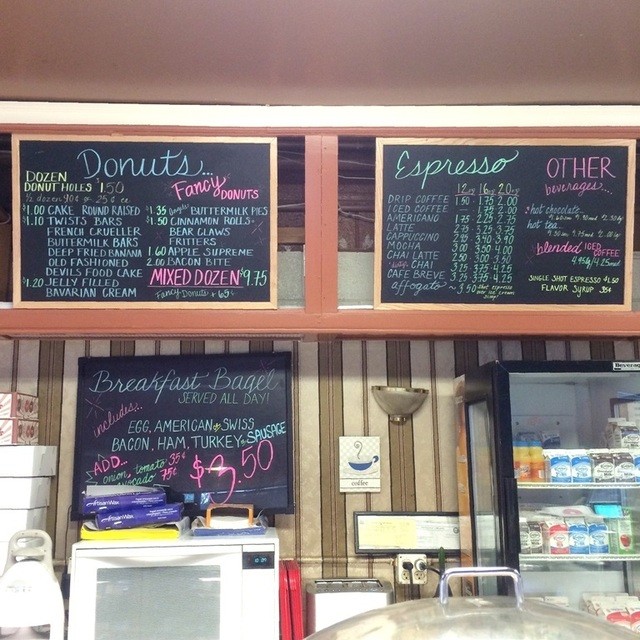 Donuts...
DOZEN
DONUT HOLES $1.50
½ dozen 90¢ 25¢ ea
$1.00 CAKE ROUND RAISED
$1.10 TWISTS BARS
FRENCH CRUELLER
BUTTERMILK BARS
DEEP FRIED BANANA
OLD FASHIONED
DEVILS FOOD CAKE
$1.20 JELLY FILLED
BAVARIAN CREAM
Fancy DONUTS
$1.35 BUTTERMILK PIES
$1.50 CINNAMON ROLLS
BEAR CLAWS
FRITTERS
1.60 APPLE SUPREME
2.00 BACON BITE
MIXED DOZEN $9.75
Fancy Donuts + 65¢
Espresso
12oz 16oz 20oz
DRIP COFFEE 1.50 1.75 2.00
ICED COFFEE
AMERICANO
LATTE
CAPPUCCINO
MOCHA
CHAI LATTE
CHAI
CAFE BREVE 3.25 3.75 4.25
affogato ~ 3.50
OTHER
beverages...
hot chocolate
hot tea
blended ICED COFFEE
SINGLE SHOT ESPRESSO $1.50
FLAVOR SYRUP 35¢
Breakfast Bagel
SERVED ALL DAY!
includes...
EGG, AMERICAN or SWISS
BACON, HAM, TURKEY or SAUSAGE
ADD...
onion, tomato 35¢
avocado 75¢
$3.50
coffee
Beverag